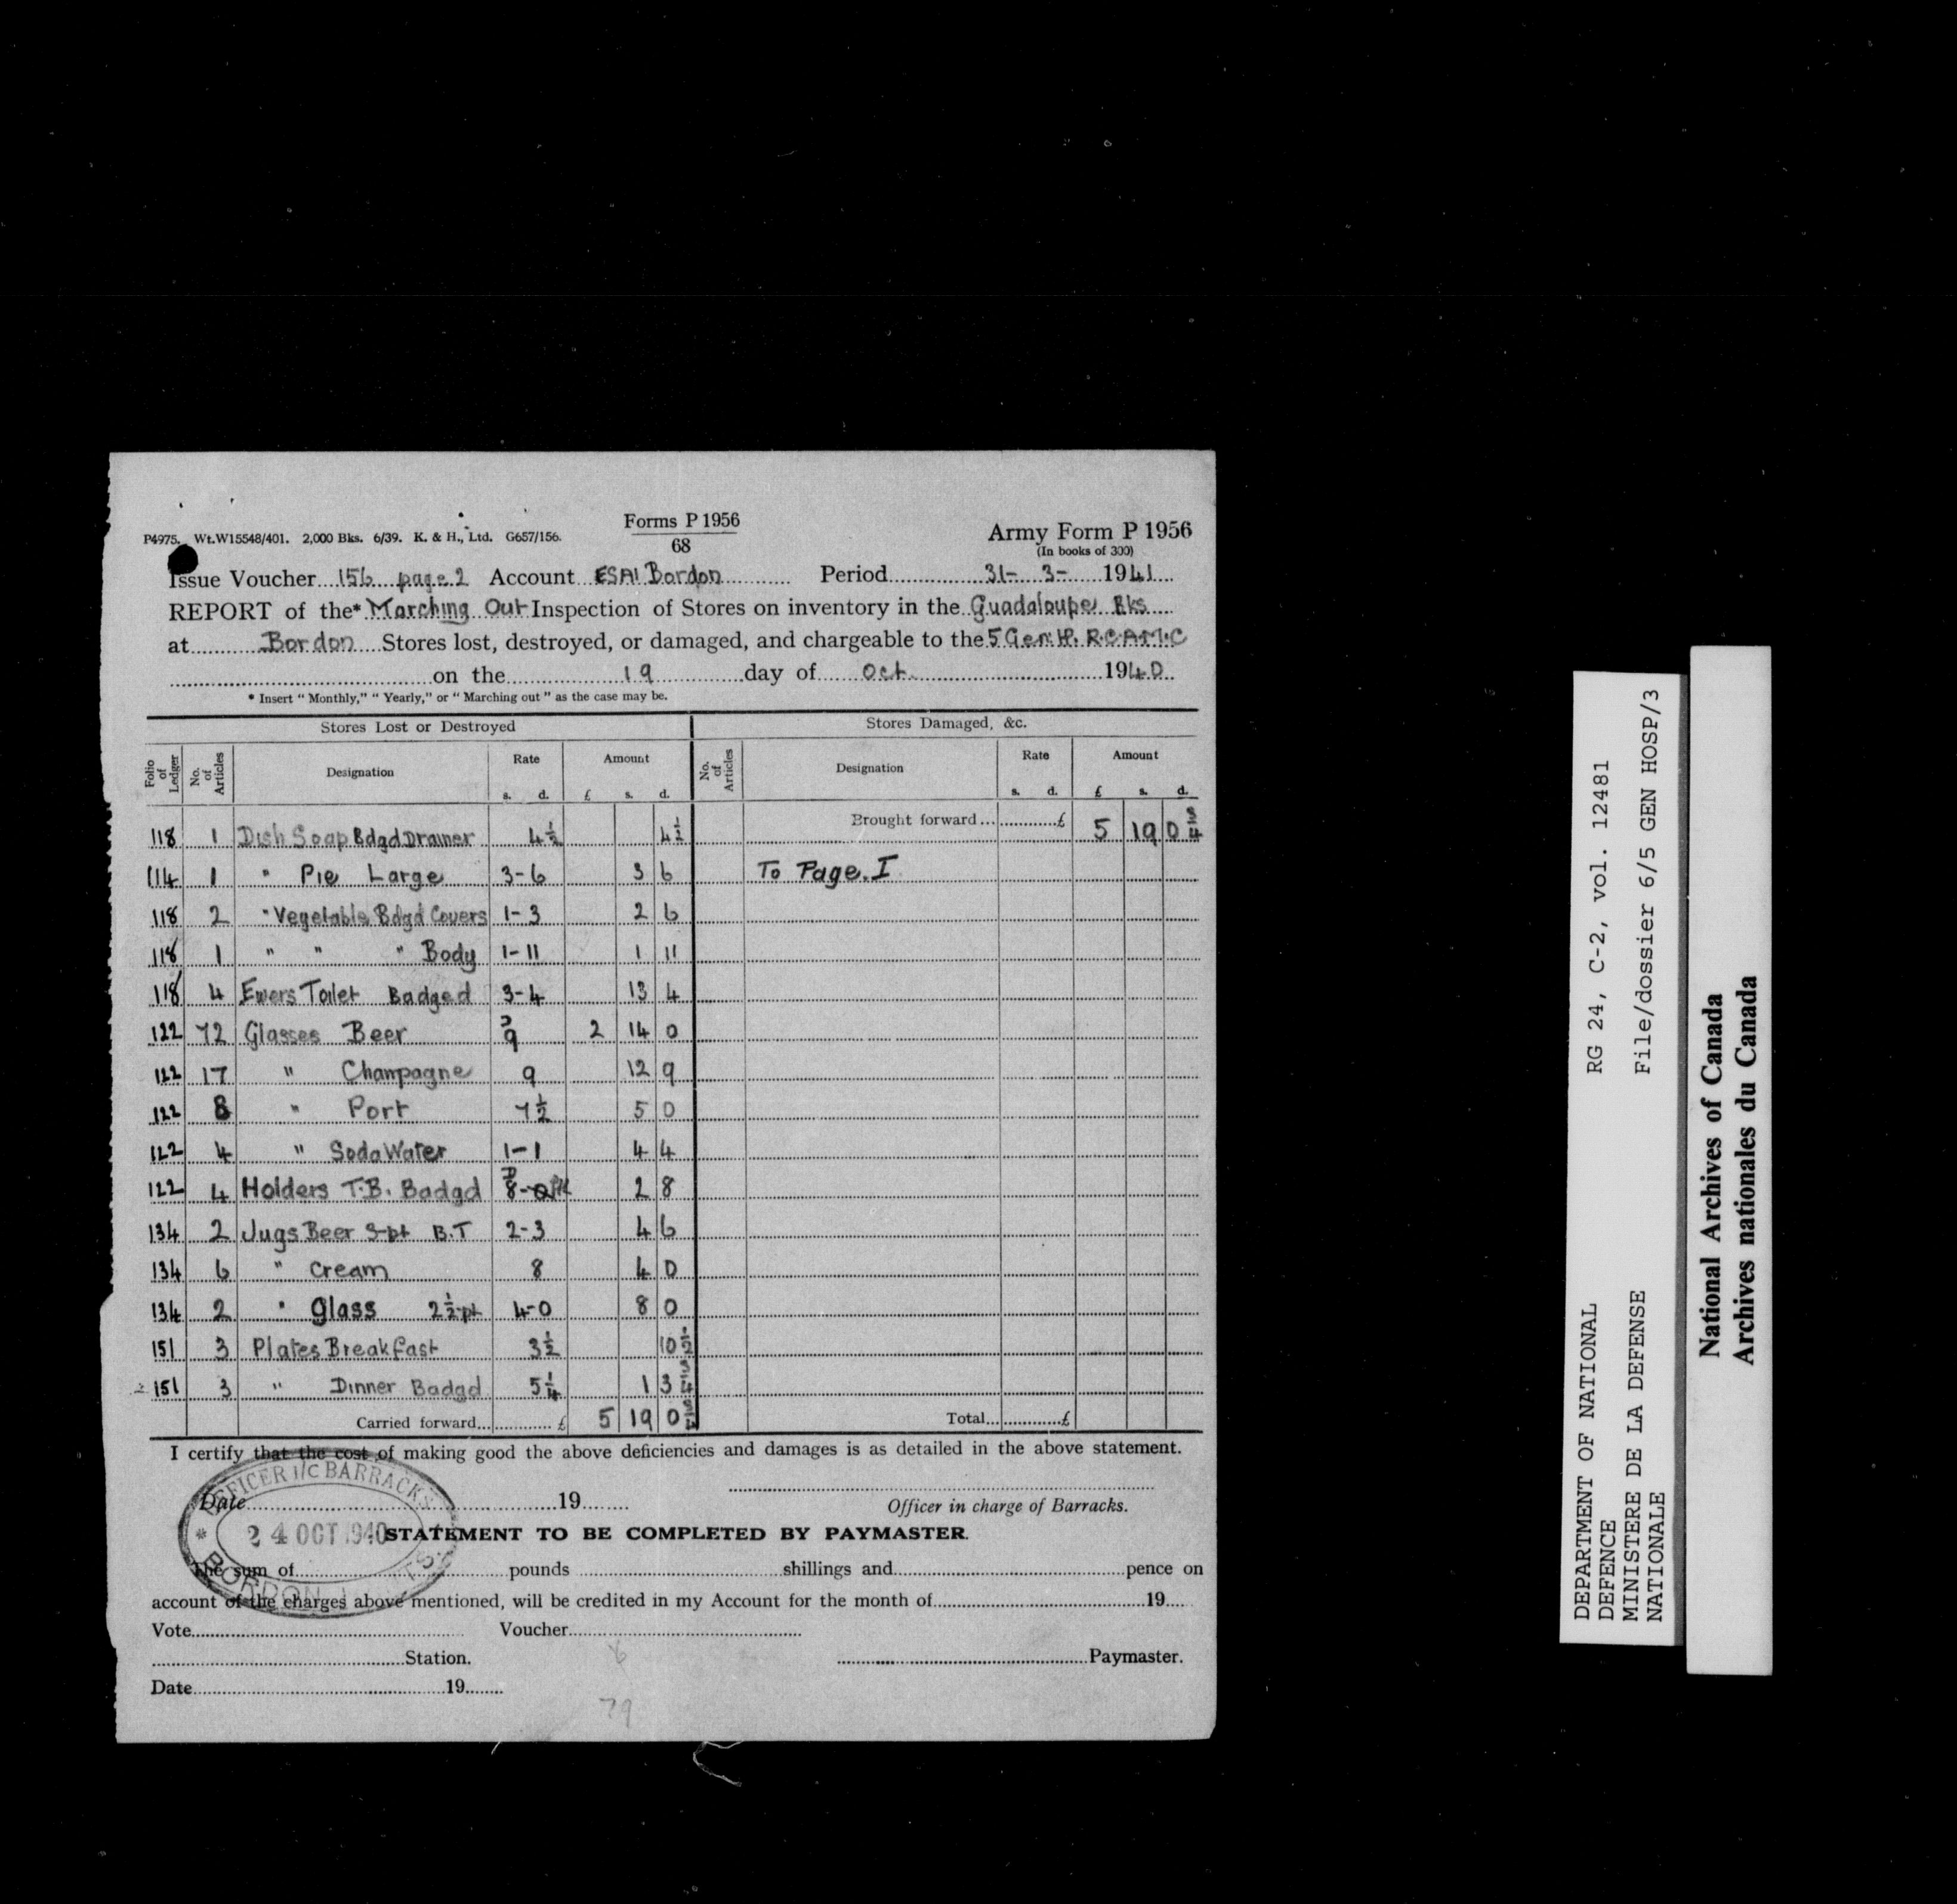 P4975. Wt.W15548/401. 2,000 Bks. 6/39. K. & H., Ltd. G657/156.
Forms P 1956
68
Army Form P 1956
(In books of 300)
Issue Voucher 156 page 2 Account ESAI Bordon Period 31- 3- 1941
REPORT of the* Marching Out Inspection of Stores on inventory in the Guadaloupe Bks
at Bordon Stores lost, destroyed, or damaged, and chargeable to the 5 Gen. H. R.C.A.M.C
on the 19 day of Oct. 1940
* Insert “ Monthly,” “ Yearly,” or “ Marching out ” as the case may be.
Stores Lost or Destroyed Stores Damaged, &c.
Folio of Ledger No. of Articles Designation Rate Amount No. of Articles Designation Rate Amount
s. d. £ s. d. s. d. £ s. d.
118 1 Dish Soap Bdgd Drainer 4½ 4½ Brought forward... £ 5 19 0¾
114 1 " Pie Large 3-6 3 6 To Page. I
118 2 " Vegetable Bdgd Covers 1-3 2 6
118 1 " " " Body 1-11 1 11
118 4 Ewers Toilet Badged 3-4 13 4
122 72 Glasses Beer 9 2 14 0
122 17 " Champagne 9 12 9
122 8 " Port 7½ 5 0
122 4 " Soda Water 1-1 4 4
122 4 Holders T.B. Badgd 8-0 2 8
134 2 Jugs Beer 3-pt B.T 2-3 4 6
134 6 " Cream 8 4 0
134 2 " Glass 2½-pt 4-0 8 0
151 3 Plates Breakfast 3½ 10½
151 3 " Dinner Badgd 5¼ 1 3¾
Carried forward... £ 5 19 0¾ Total... £
I certify that the cost of making good the above deficiencies and damages is as detailed in the above statement.
OFFICER I/C BARRACKS
Date 19
Officer in charge of Barracks.
24 OCT 1940
STATEMENT TO BE COMPLETED BY PAYMASTER.
BORDON
The sum of pounds shillings and pence on
account of the charges above mentioned, will be credited in my Account for the month of 19
Vote Voucher
Station. Paymaster.
Date 19
79
DEPARTMENT OF NATIONAL RG 24, C-2, vol. 12481
DEFENCE
MINISTERE DE LA DEFENSE File/dossier 6/5 GEN HOSP/3
NATIONALE
National Archives of Canada
Archives nationales du Canada